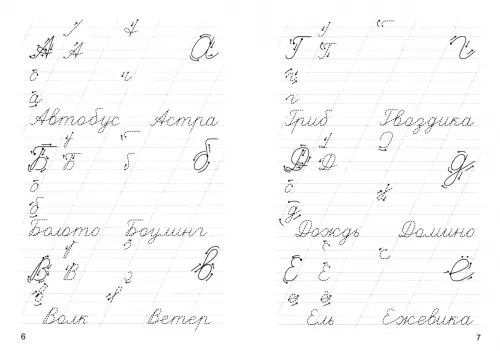 А А а
Автобус Астра
Б Б б б
б
б
Болото Боулинг
В В в
Волк Ветер
6
Г Г г
г
г
Гриб Гвоздика
Д Д д
д
Дождь Домино
Е Е ё
ё ё
Ель Ежевика
7